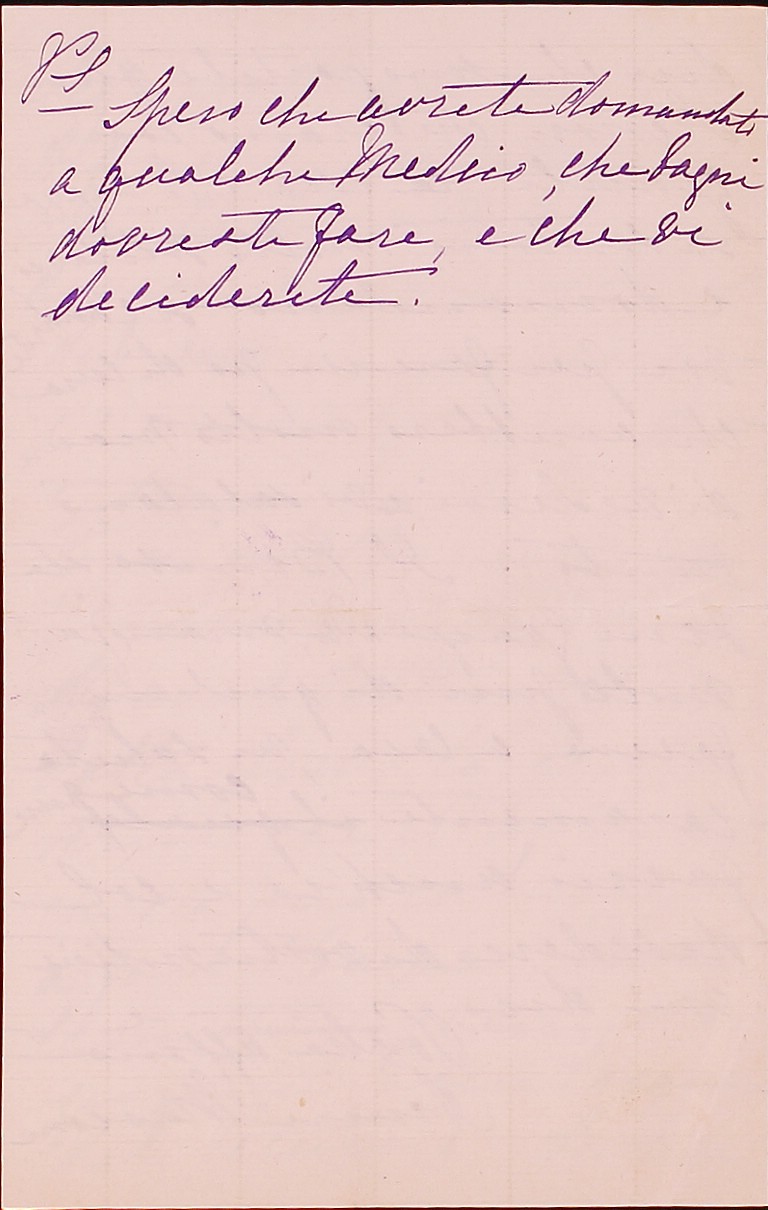 PS
Spero che avrete domandato
a qualche Medico, che bagni
dovreste fare, e che vi
deciderete.